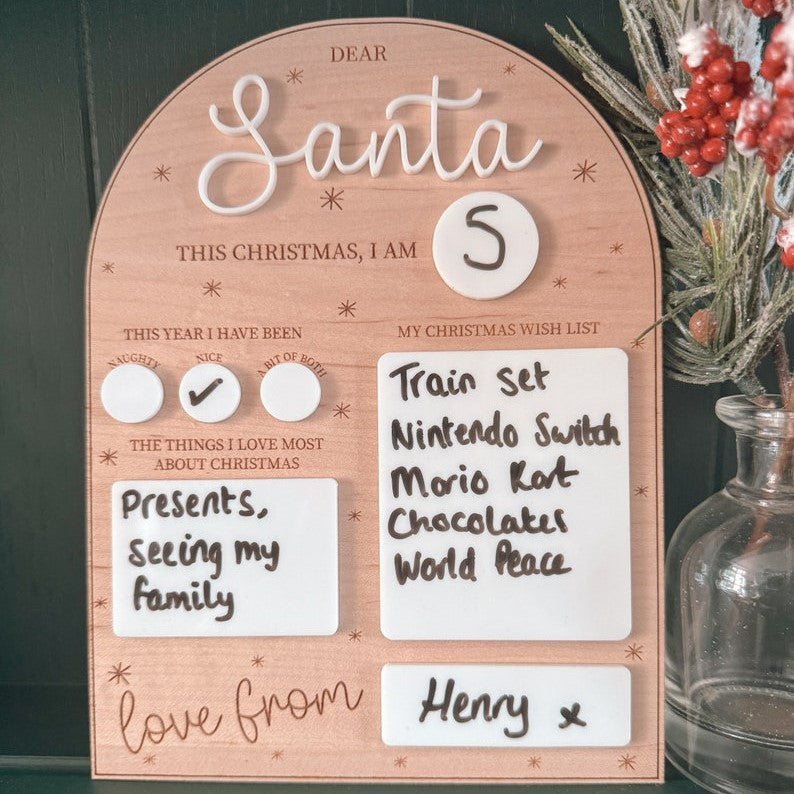 DEAR
Santa
THIS CHRISTMAS, I AM 5
THIS YEAR I HAVE BEEN
NAUGHTY NICE A BIT OF BOTH
THE THINGS I LOVE MOST
ABOUT CHRISTMAS
Presents,
seeing my
family
MY CHRISTMAS WISH LIST
Train set
Nintendo Switch
Mario Kart
Chocolates
World Peace
love from
Henry x